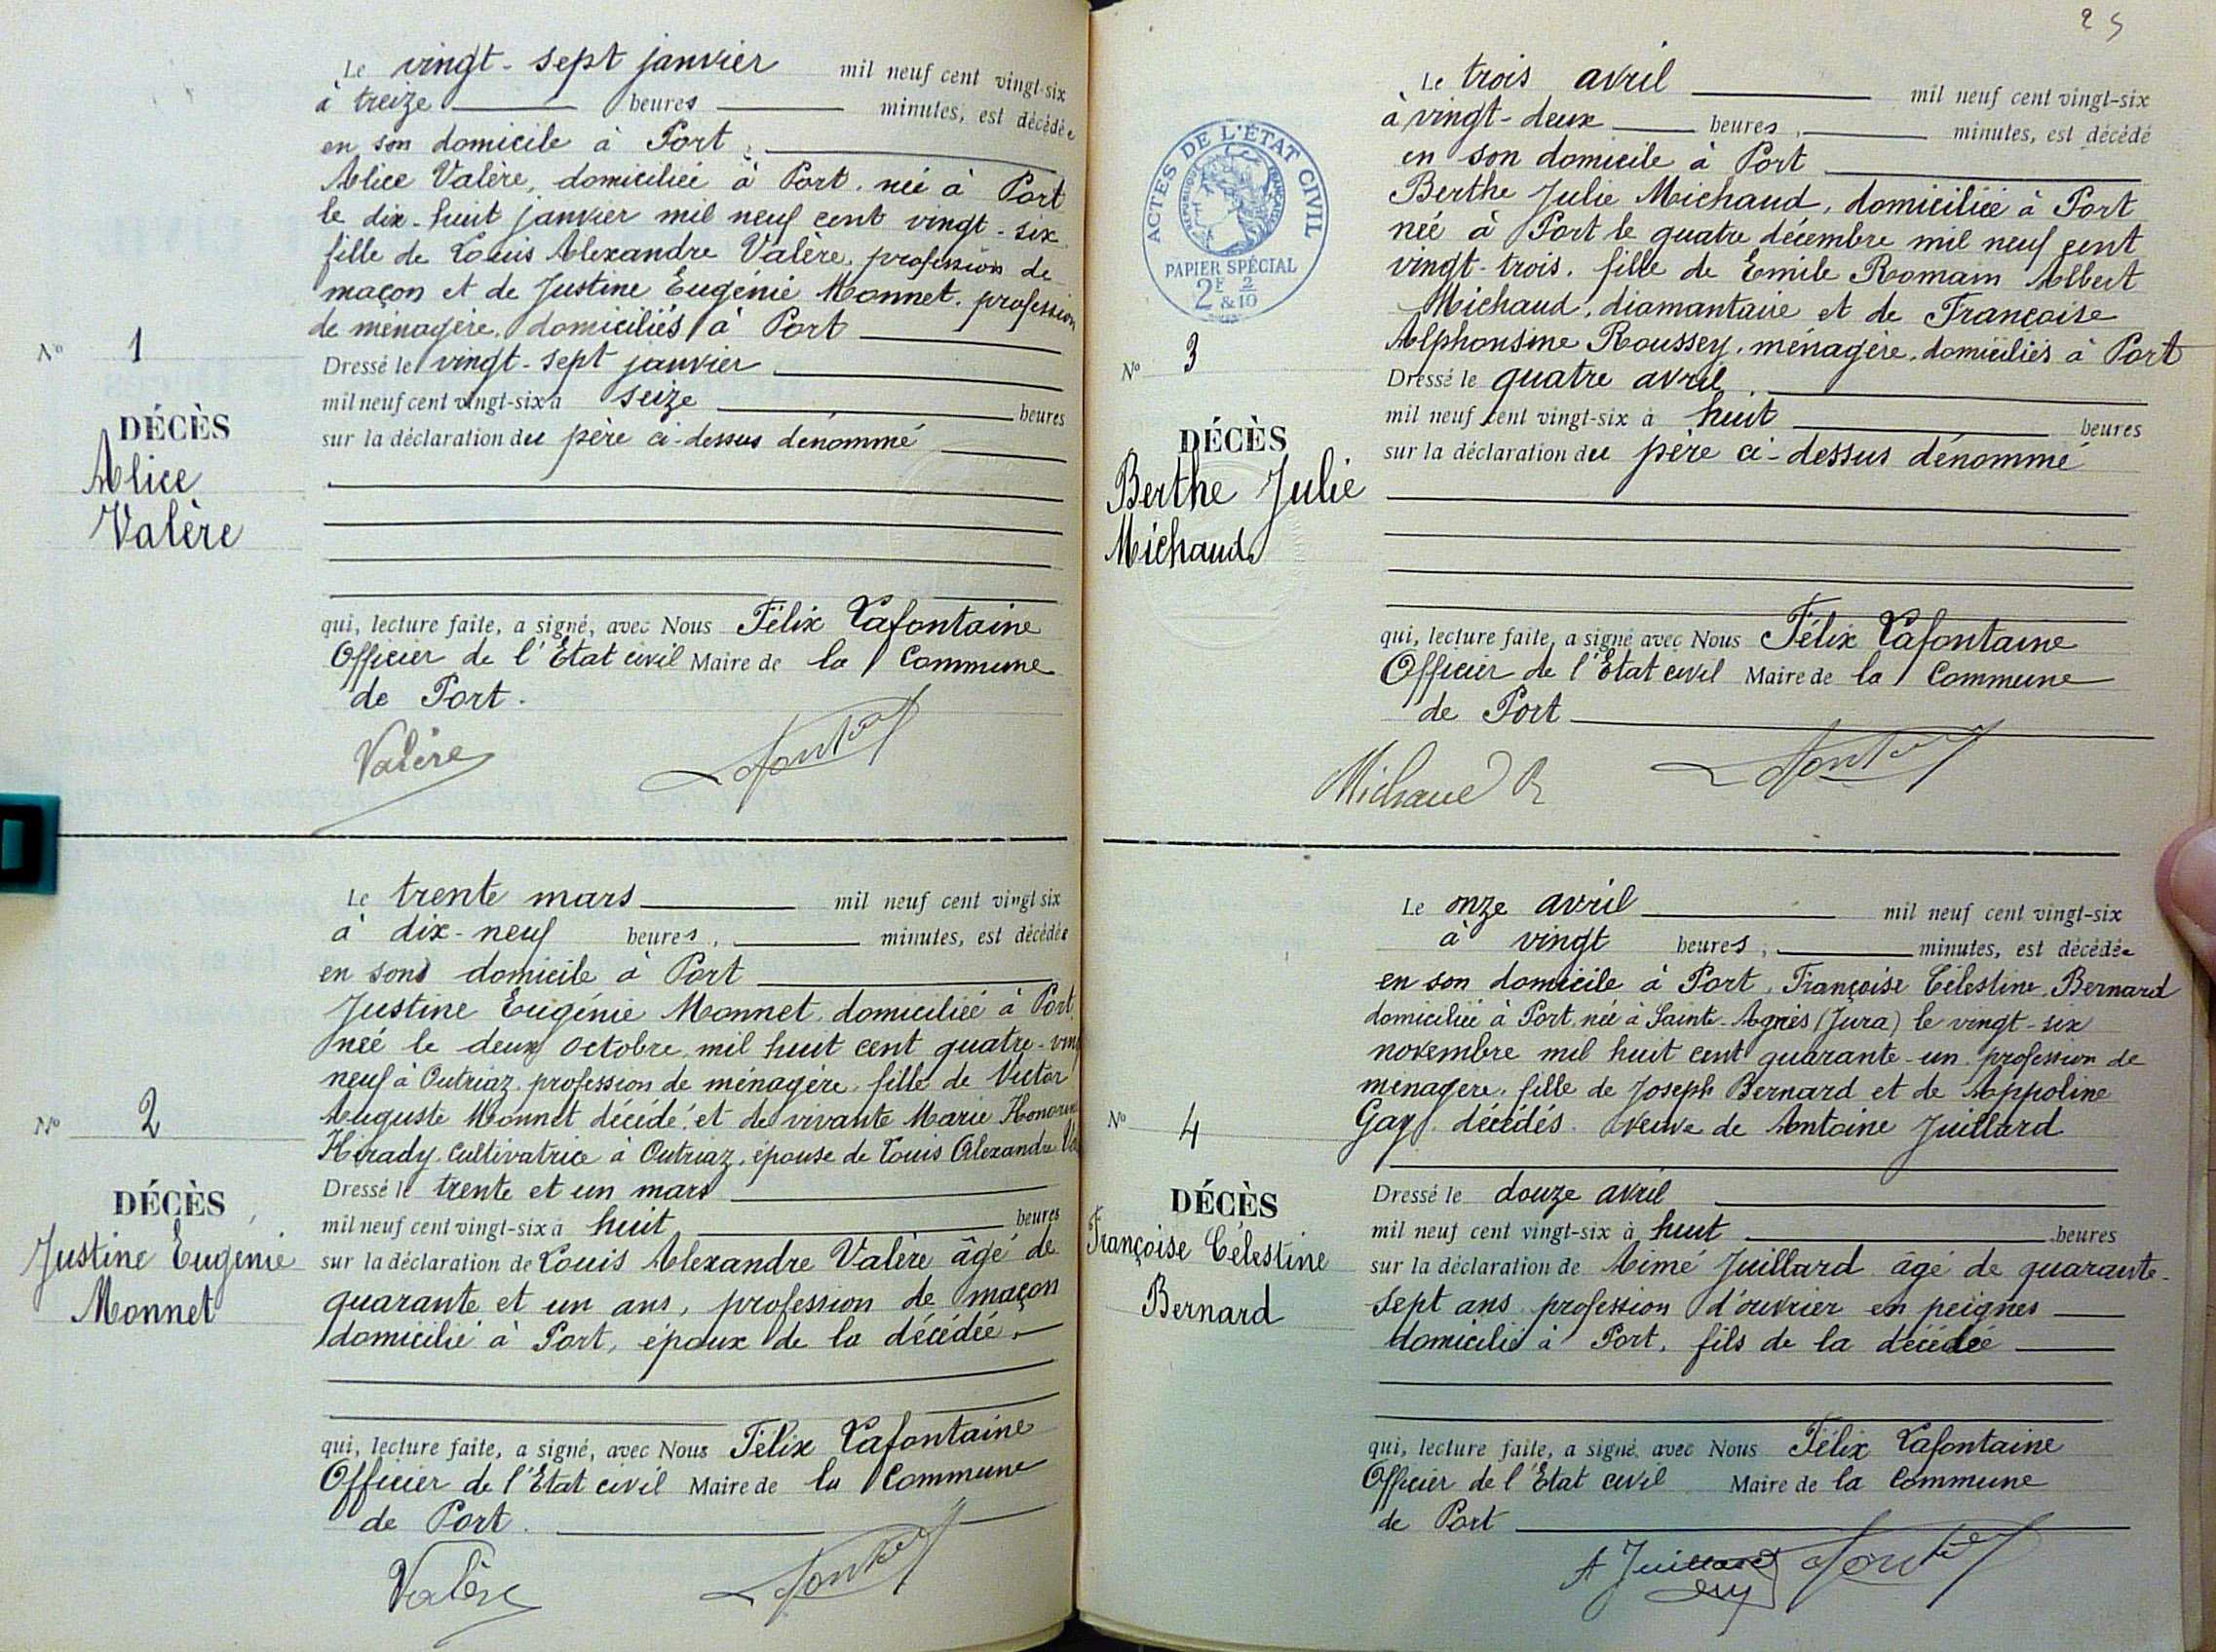 Le vingt-sept janvier mil neuf cent vingt-six
à treize heures minutes, est décédée
en son domicile à Port
Alice Valère, domiciliée à Port, née à Port
le dix-huit janvier mil neuf cent vingt-six
fille de Louis Alexandre Valère, profession de
maçon et de Justine Eugénie Monnet, profession
de ménagère, domiciliés à Port
Nº 1
Dressé le vingt-sept janvier
mil neuf cent vingt-six à seize heures
DÉCÈS
sur la déclaration du père ci-dessus dénommé
Alice
Valère
qui, lecture faite, a signé, avec Nous Félix Lafontaine
Officier de l'État civil Maire de la Commune
de Port.
Valère
Le trente mars mil neuf cent vingt-six
à dix-neuf heures, minutes, est décédée
en son domicile à Port
Justine Eugénie Monnet, domiciliée à Port
née le deux Octobre mil huit cent quatre-vin
neuf à Outriaz, profession de ménagère, fille de Victor
Auguste Monnet décédé, et de vivante Marie
Nº 2
Hirady, Cultivatrice à Outriaz, épouse de Louis Alexandre
Dressé le trente et un mars
DÉCÈS
mil neuf cent vingt-six à huit heures
Justine Eugénie
sur la déclaration de Louis Alexandre Valère âgé de
Monnet
quarante et un ans, profession de maçon
domicilié à Port, époux de la décédée
qui, lecture faite, a signé, avec Nous Félix Lafontaine
Officier de l'État civil Maire de la Commune
de Port.
Valère
25
Le trois avril mil neuf cent vingt-six
à vingt-deux heures, minutes, est décédé
en son domicile à Port
ACTES DE L'ÉTAT CIVIL
RÉPUBLIQUE FRANÇAISE
PAPIER SPÉCIAL
2F 2/10
&
Berthe Julie Michaud, domiciliée à Port
née à Port le quatre décembre mil neuf cent
vingt-trois, fille de Emile Romain Albert
Michaud, diamantaire et de Françoise
Alphonsine Roussey, ménagère, domiciliés à Port
Nº 3
Dressé le quatre avril
mil neuf cent vingt-six à huit heures
DÉCÈS
sur la déclaration du père ci-dessus dénommé
Berthe Julie
Michaud
qui, lecture faite, a signé avec Nous Félix Lafontaine
Officier de l'État civil Maire de la Commune
de Port
Michaud R
Le onze avril mil neuf cent vingt-six
à vingt heures, minutes, est décédée
en son domicile à Port, Françoise Célestine Bernard
domiciliée à Port, née à Sainte-Agnès (Jura) le vingt-six
novembre mil huit cent quarante-un, profession de
ménagère, fille de Joseph Bernard et de Appoline
Gay, décédés. Veuve de Antoine Juillard
Nº 4
Dressé le douze avril
DÉCÈS
mil neuf cent vingt-six à huit heures
Françoise Célestine
Bernard
sur la déclaration de Aimé Juillard âgé de quarante-
sept ans, profession d'ouvrier en peignes
domicilié à Port, fils de la décédée
qui, lecture faite, a signé, avec Nous Félix Lafontaine
Officier de l'État civil Maire de la Commune
de Port
A Juillard